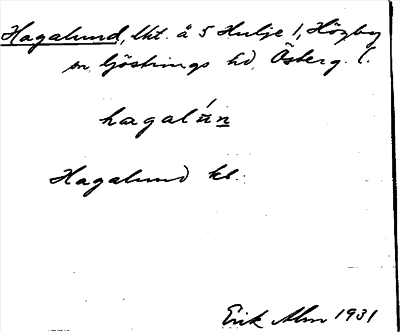 Hagalund, lht. å 5 Hulje 1, Högby
sn Göstrings hd, Österg. l.
hagalún
Hagalund kl.
Erik Alm 1931